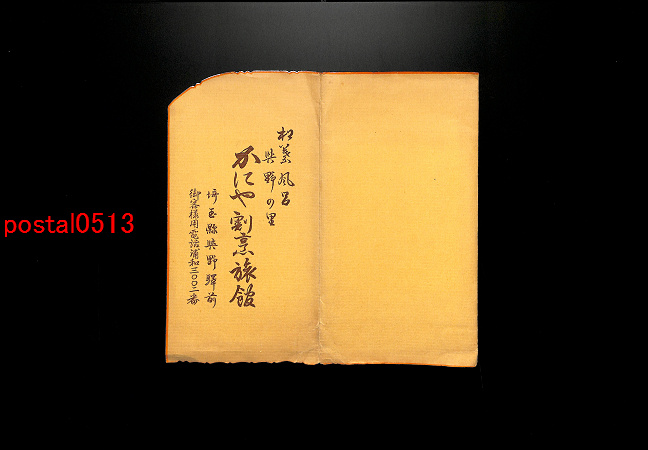 松葉風呂
與野の里
かにや割烹旅館
埼玉縣與野驛前
御客様用電話浦和三〇〇二番
postal0513